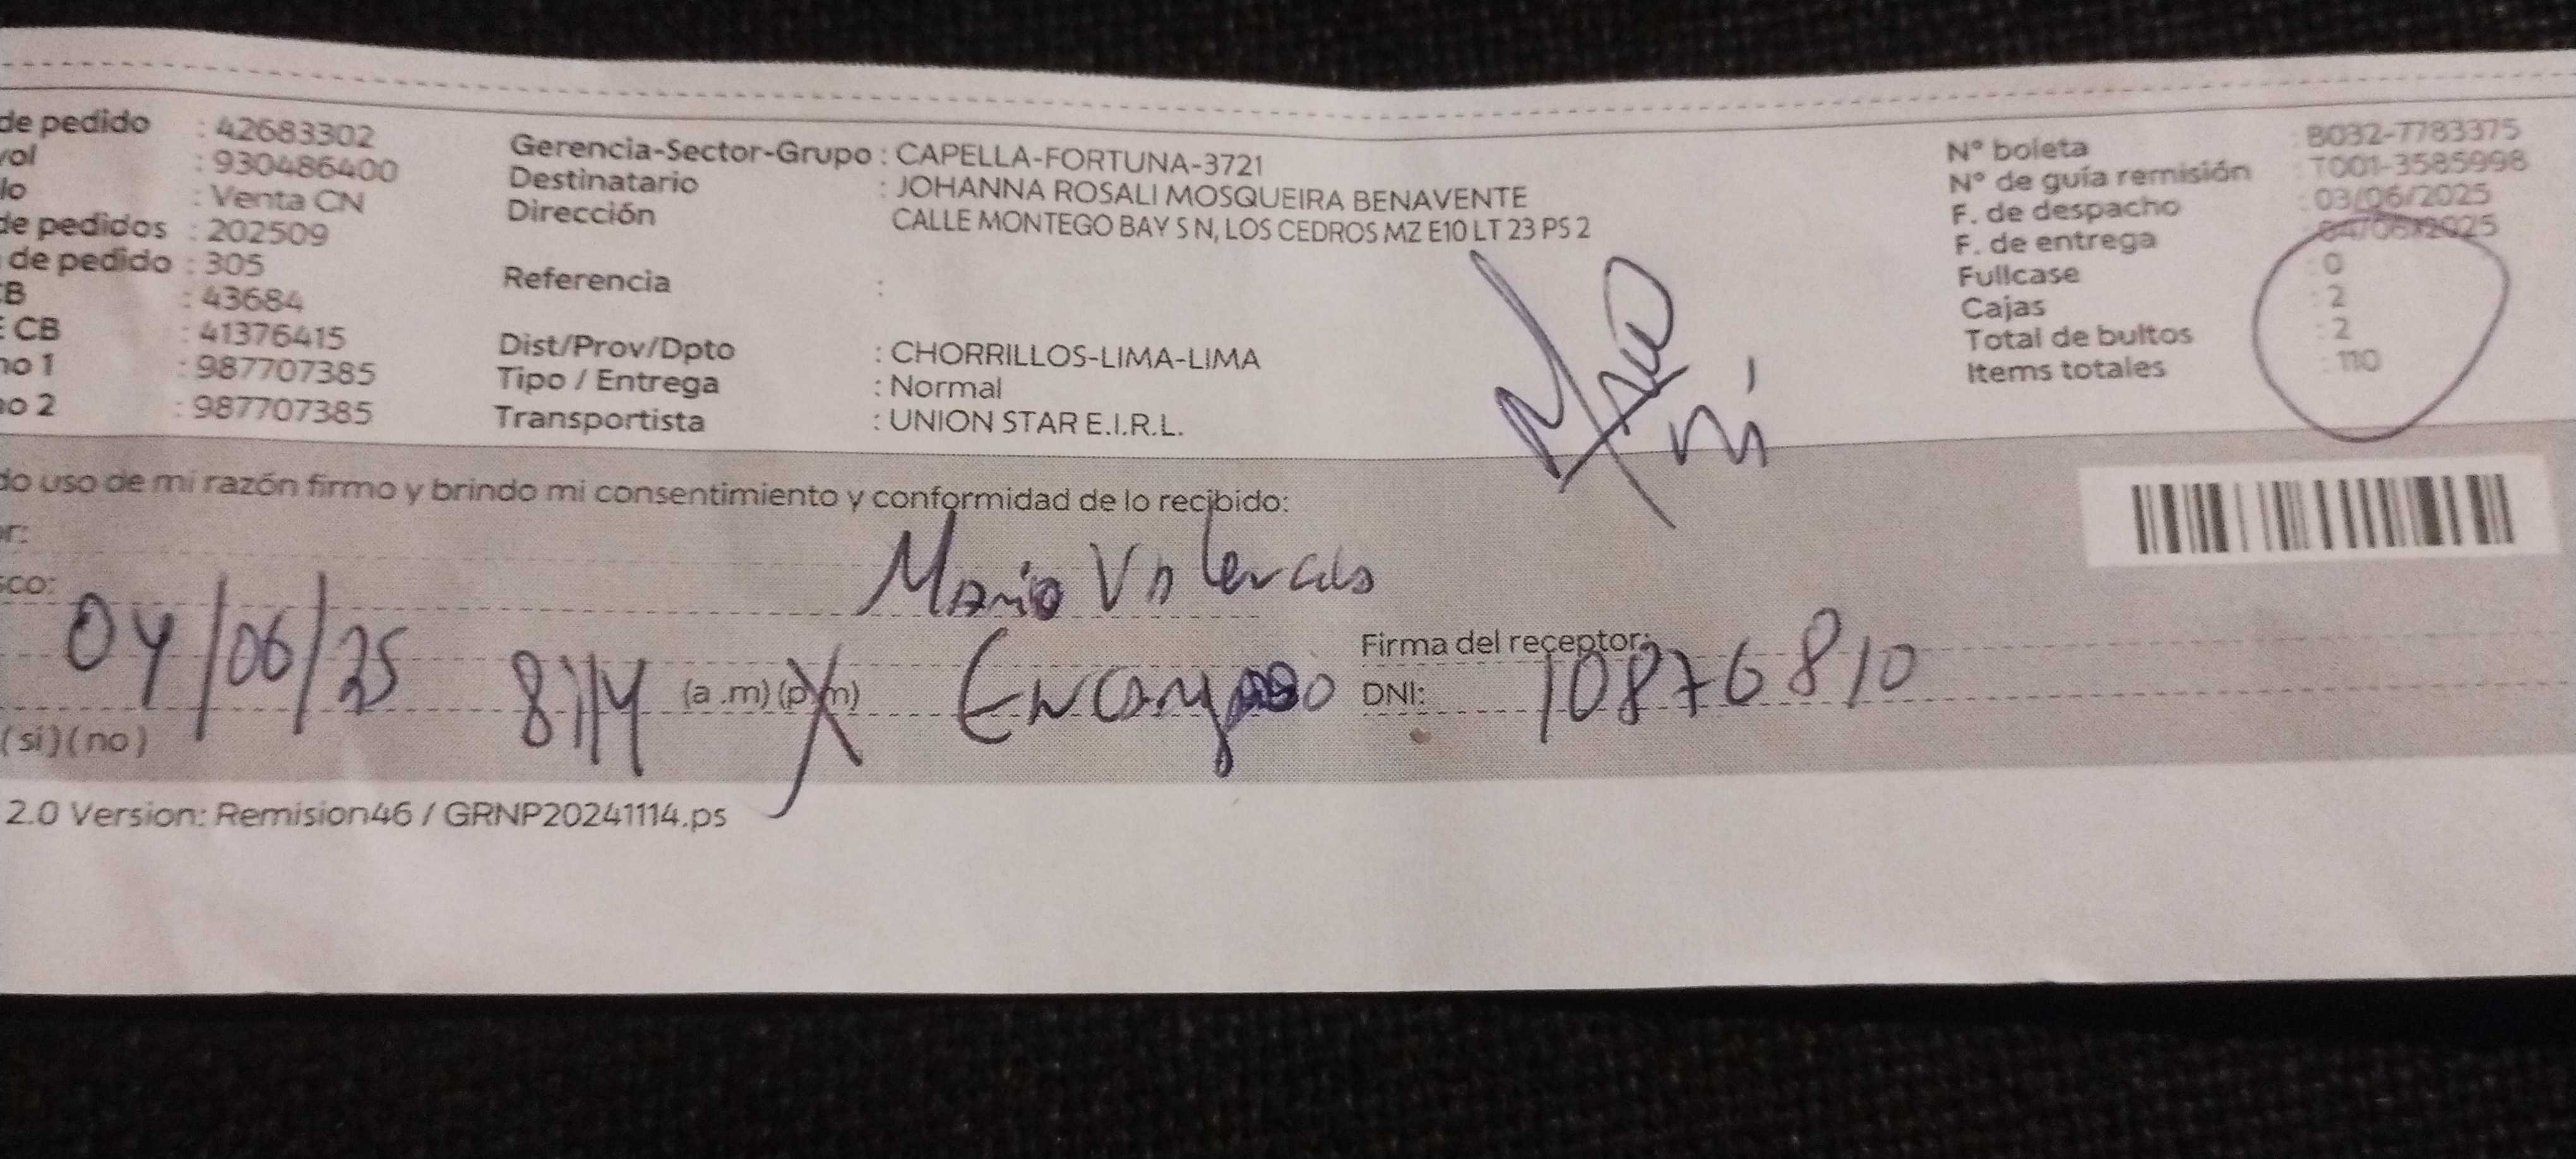 de pedido : 42683302
vol : 930486400
lo : Venta CN
de pedidos : 202509
de pedido : 305
CB : 43684
E CB : 41376415
no 1 : 987707385
no 2 : 987707385
Gerencia-Sector-Grupo : CAPELLA-FORTUNA-3721
Destinatario : JOHANNA ROSALI MOSQUEIRA BENAVENTE
Dirección CALLE MONTEGO BAY S N, LOS CEDROS MZ E10 LT 23 PS 2
Referencia :
Dist/Prov/Dpto : CHORRILLOS-LIMA-LIMA
Tipo / Entrega : Normal
Transportista : UNION STAR E.I.R.L.
N° boleta : B032-7783375
N° de guía remisión : T001-3585998
F. de despacho : 03/06/2025
F. de entrega : 04/06/2025
Fullcase : 0
Cajas : 2
Total de bultos : 2
Items totales : 110
do uso de mi razón firmo y brindo mi consentimiento y conformidad de lo recibido:
or:
sco:
Mario
04/06/25 8:14 (a .m) (p.m) Encargado
Firma del receptor:
DNI: 10876810
(si) (no)
2.0 Version: Remision46 / GRNP20241114.ps